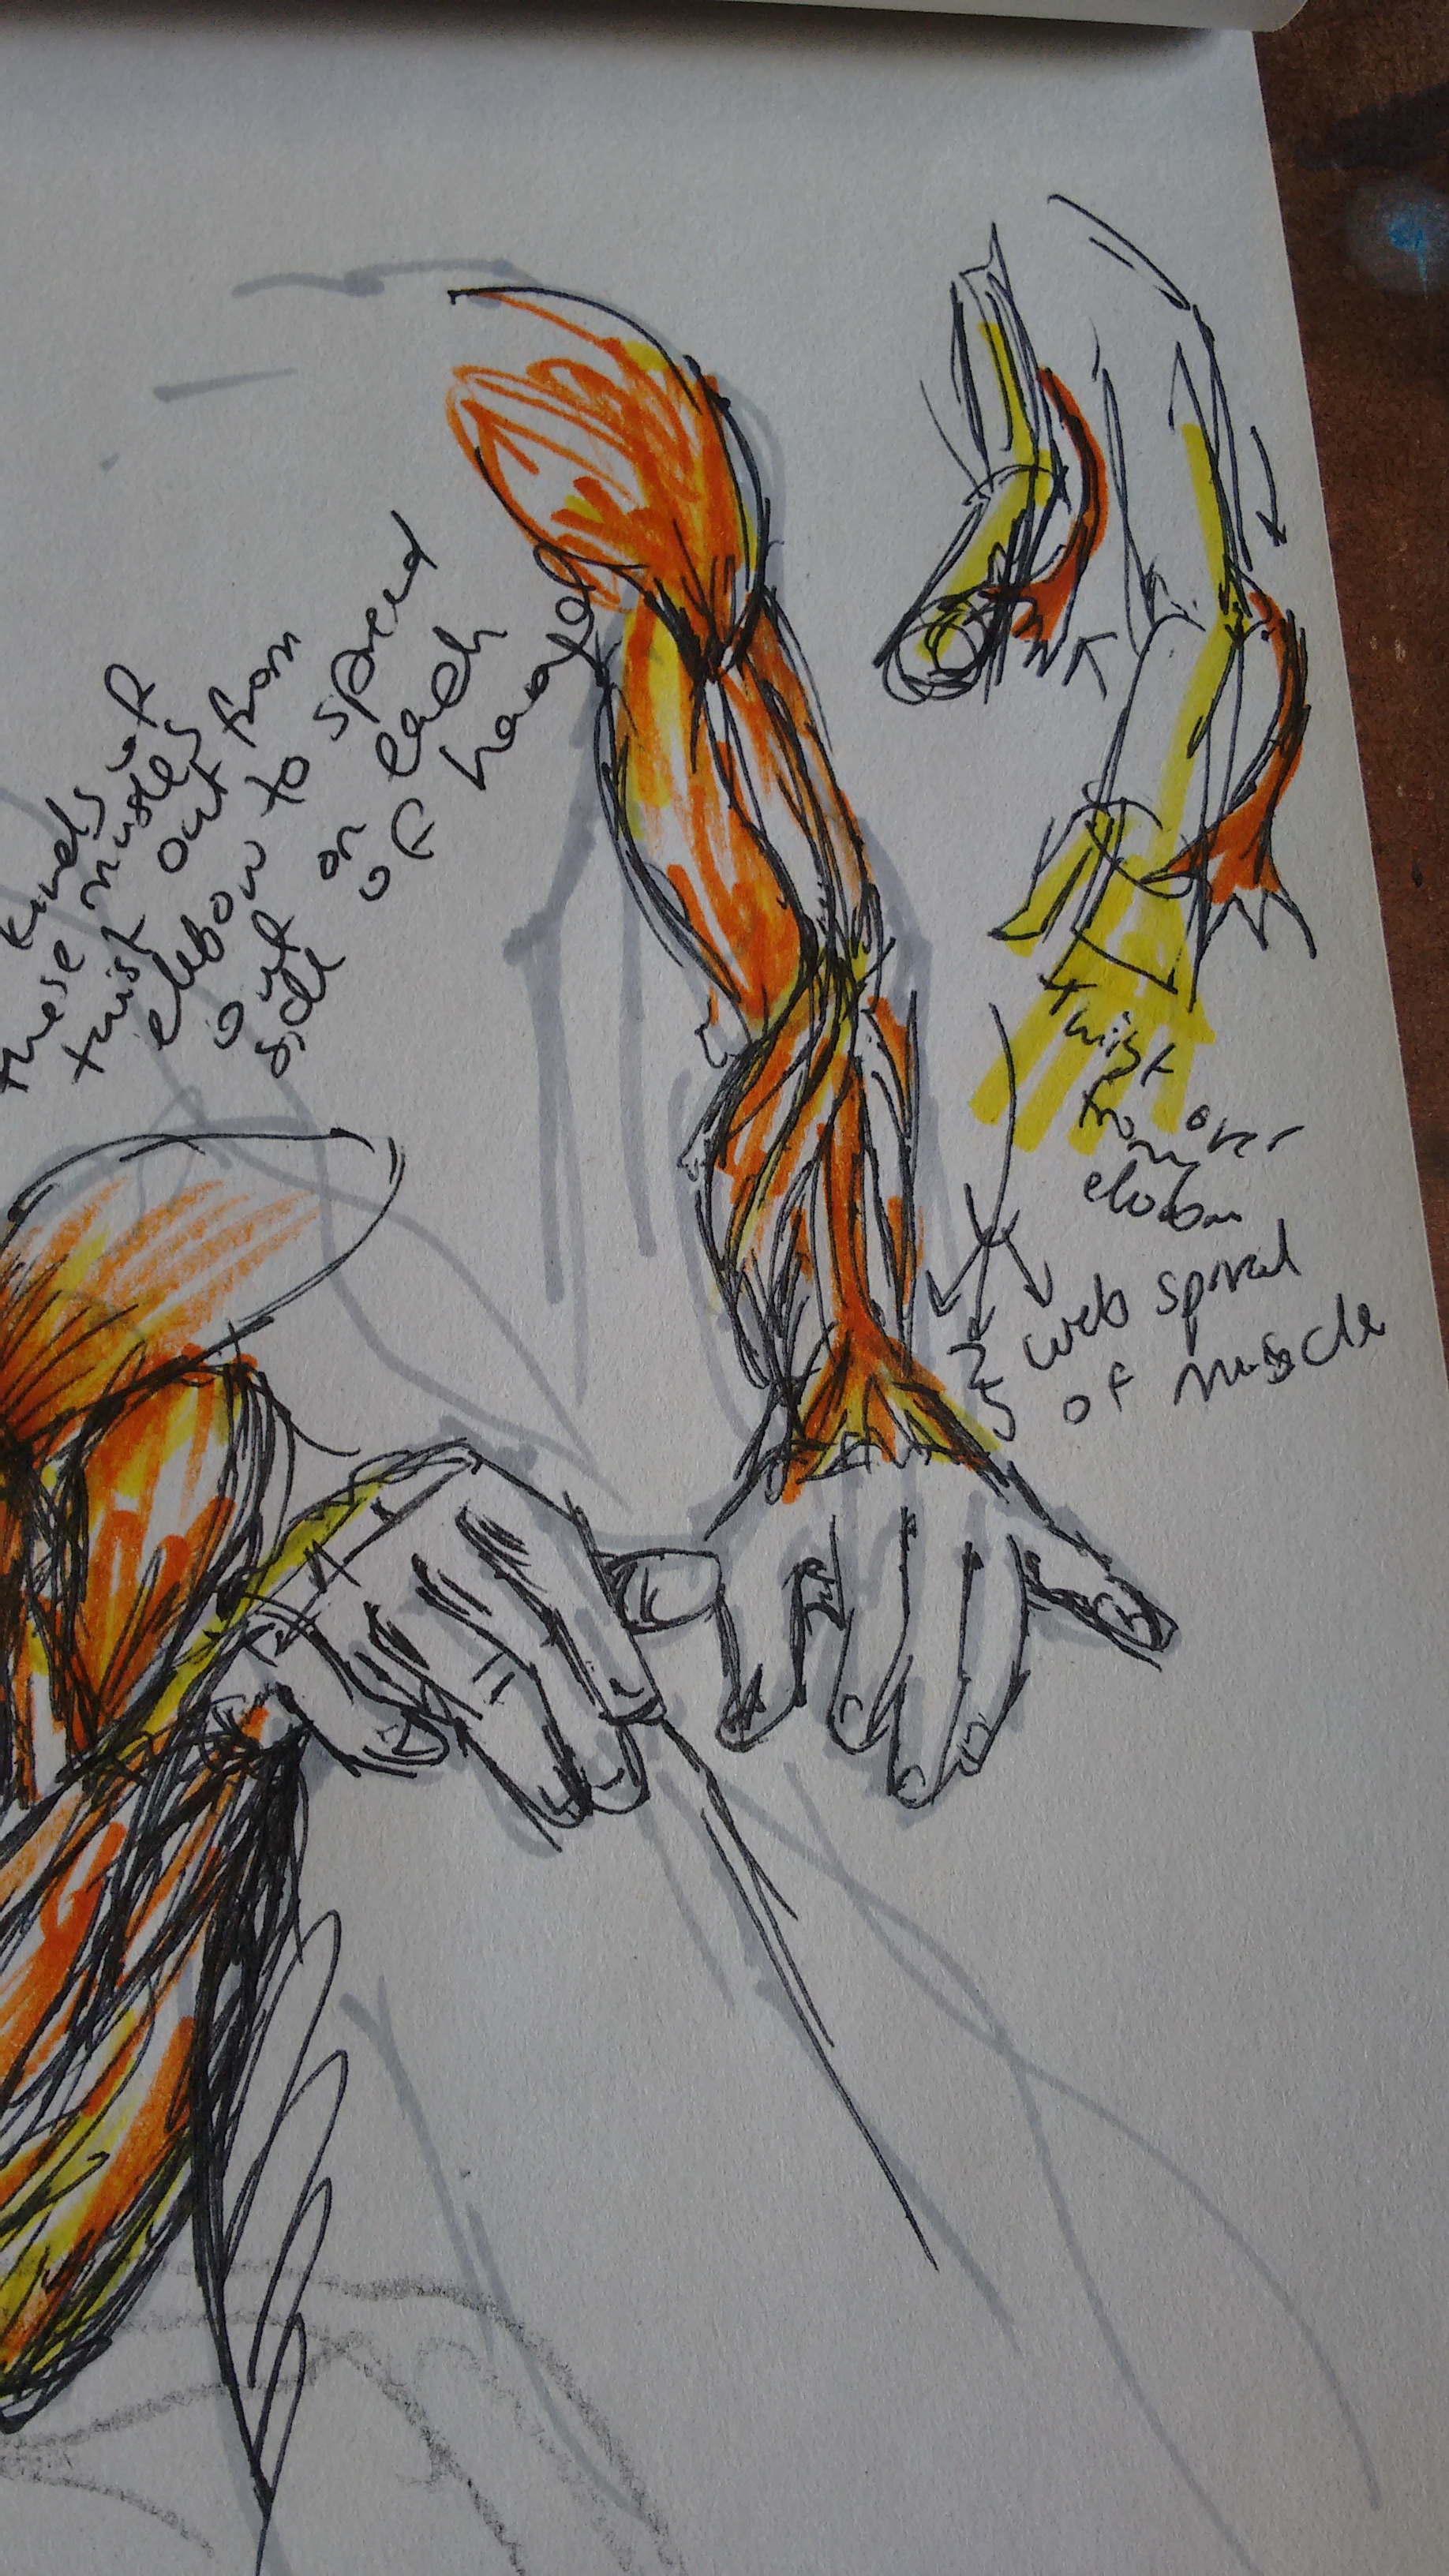 kinds of
these muscles
twist out from
elbow to spread
out on each
side of hand
twist
from over
elbow
web spiral
of muscle